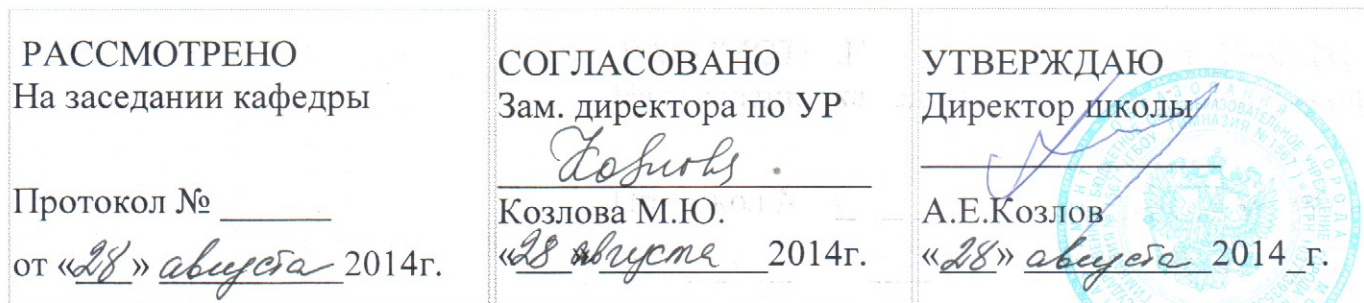 РАССМОТРЕНО
На заседании кафедры
Протокол № ______
от «28» августа 2014г.
СОГЛАСОВАНО
Зам. директора по УР
Козлова
Козлова М.Ю.
«28 августа 2014г.
УТВЕРЖДАЮ
Директор школы
А.Е.Козлов
«28» августа 2014_г.
ГИМНАЗИЯ № 1567